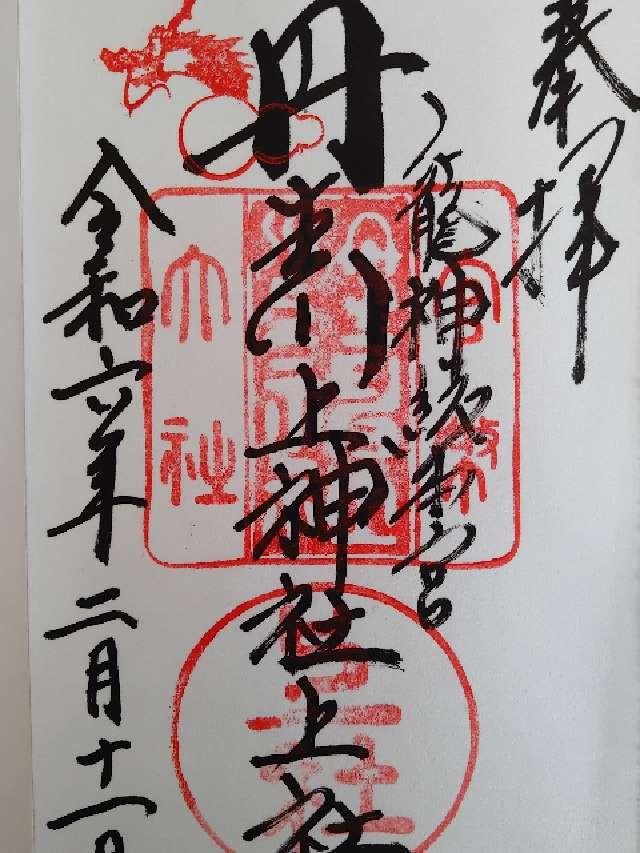 奉拝
龍神総本宮
丹生川上神社上社
令和六年二月十一日
大社
上社